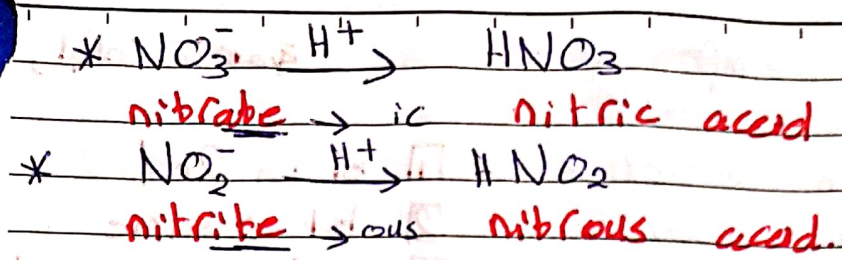 * NO₃⁻ H⁺→ HNO₃
nitrate → ic nitric acid
* NO₂⁻ H⁺→ HNO₂
nitrite → ous nitrous acid.